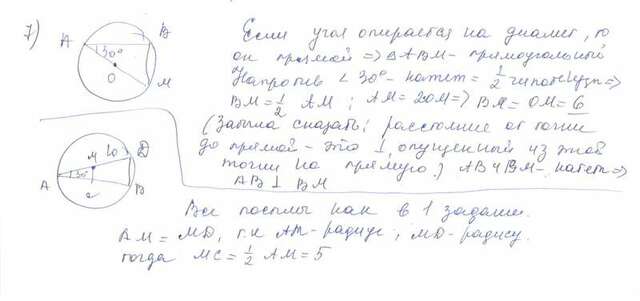 7) A B 30° O M
Если угол опирается на диамет, то
он прямой => △ ABM - прямоугольный
Напротив < 30° - катет = 1/2 гипотенузы =>
BM = 1/2 AM ; AM = 2OM => BM = OM = 6
(Забыла сказать: расстояние от точки
до прямой - это ⊥, опущенный из этой
точки на прямую.) AB и BM - катет =>
AB ⊥ BM
A M 10 D 30° B
Все посылы как в 1 задании.
AM = MD, т.к AM - радиус, MD - радиус.
тогда MC = 1/2 AM = 5